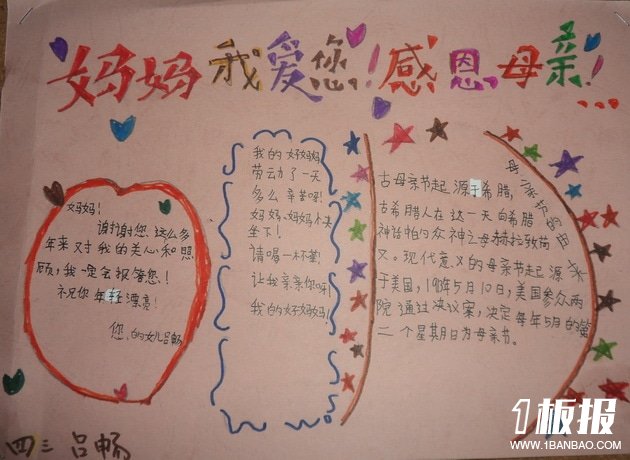 妈妈我爱您!感恩母亲!...
妈妈!
谢谢您这么多
年来对我的关心和照
顾,我一定会报答您!
祝你年轻漂亮!
您,的女儿吕畅
我的好妈妈
劳动了一天
多么辛苦呀!
妈妈妈妈快
坐下!
请喝一杯茶!
让我亲亲你呀!
我的好妈妈!
母亲节的由来
古母亲节起源于希腊,
古希腊人在这一天向希腊
神话中的众神之母赫拉致敬
义。现代意义的母亲节起源
于美国,5月10日,美国参众两
院通过决议案,决定每年5月的第
二个星期日为母亲节。
四三 吕畅
1板报
WWW.1BANBAO.COM